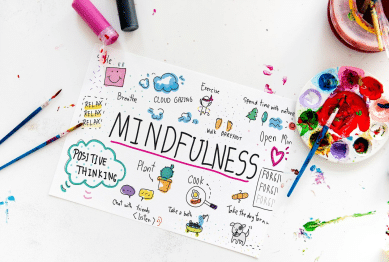 Breathe
CLOUD GAZING
Exercise
Spend time with nature
RELAX
RELAX
RELAX
WALK BAREFOOT
Open Mi
MINDFULNESS
POSITIVE
THINKING
Plant
Cook
FORGI
FORGI
FORGI
Chat with friends
(listen)
Take a bath
Take the dog for a